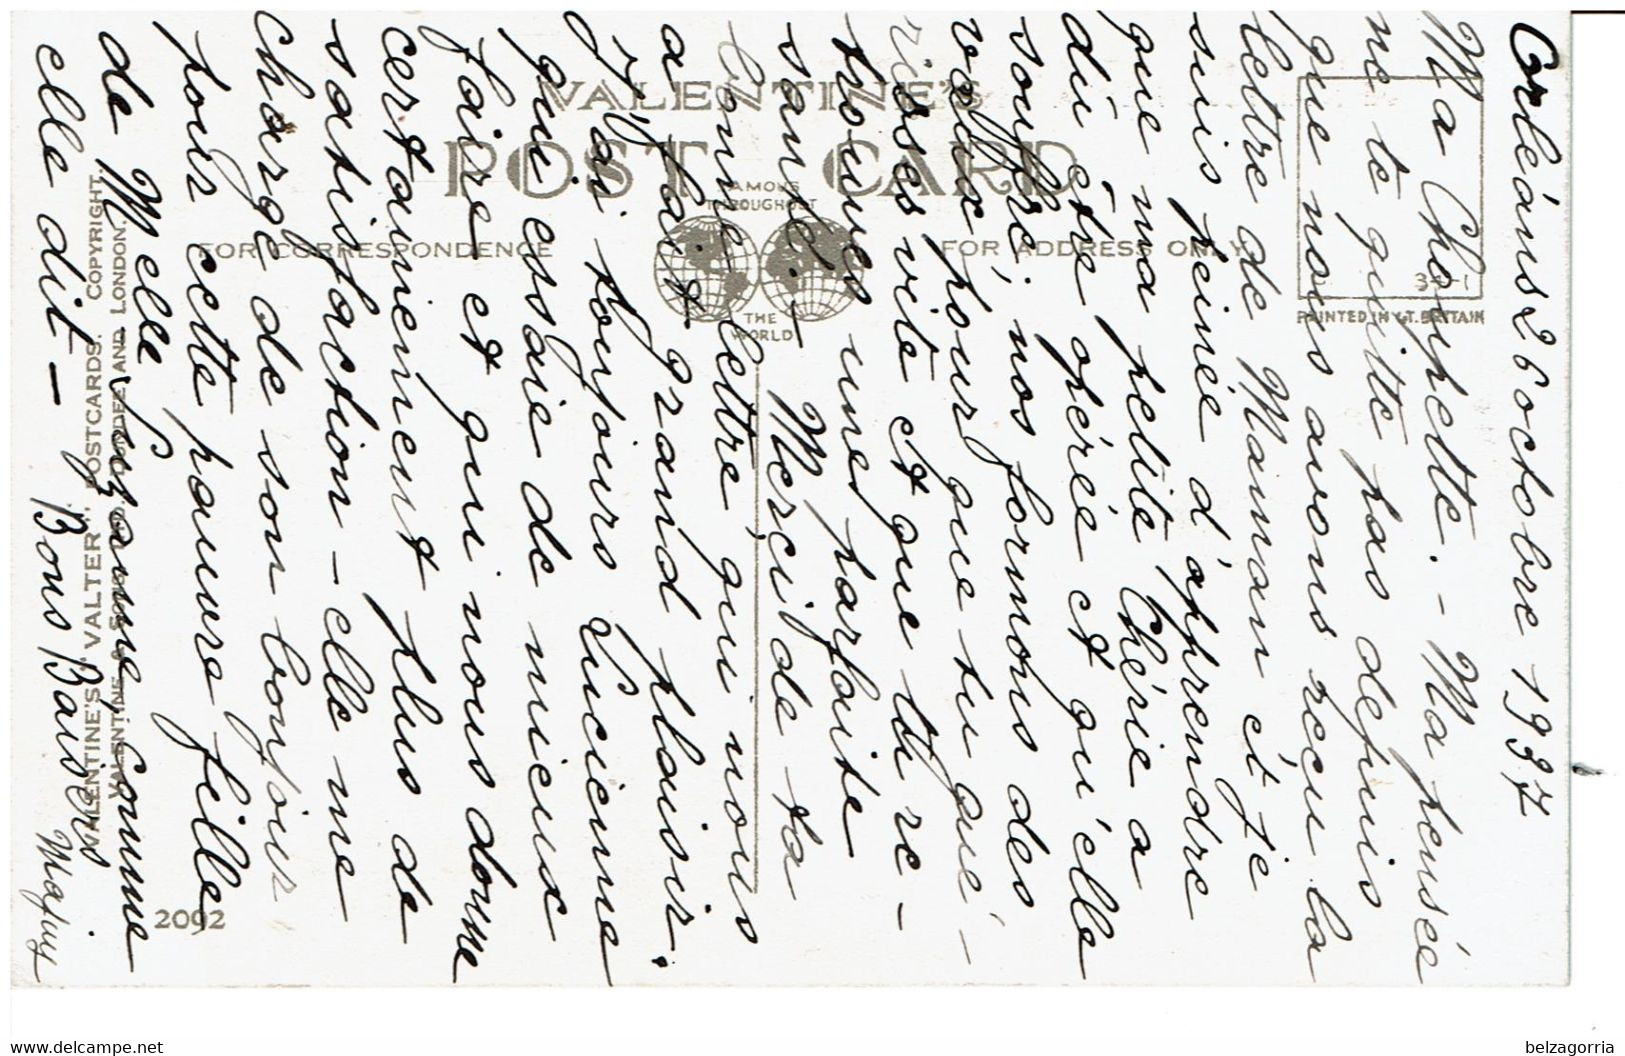 Corléans 26 octobre 1937
Ma Choupette. - Ma pensée
ne te quitte pas depuis
que nous avons reçu la
lettre de Maman et je
suis peinée d'apprendre
que ma petite Chérie a
dû être opérée et qu'elle
souffre, nos formons des
vœux pour que tu gué-
risses vite et que tu re-
trouves une parfaite
santé. - Merci de ta
bonne lettre qui nous
a fait grand plaisir.
J'ai toujours Lucienne
qui essaie de mieux
faire et qui nous donne
certainement plus de
satisfaction - elle me
charge de son bonjour
pour cette pauvre fille
de Melle Suzanne, comme
elle dit - Bons Baisers
VALENTINE'S
POST CARD
FAMOUS
THROUGHOST
THE
WORLD
FOR CORRESPONDENCE
FOR ADDRESS ONLY
34-1
PRINTED IN GT. BRITAIN
VALENTINE'S "VALTER" POSTCARDS. COPYRIGHT.
VALENTINE & SONS, LTD., DUNDEE AND LONDON.
2092
www.delcampe.net
belzagorria